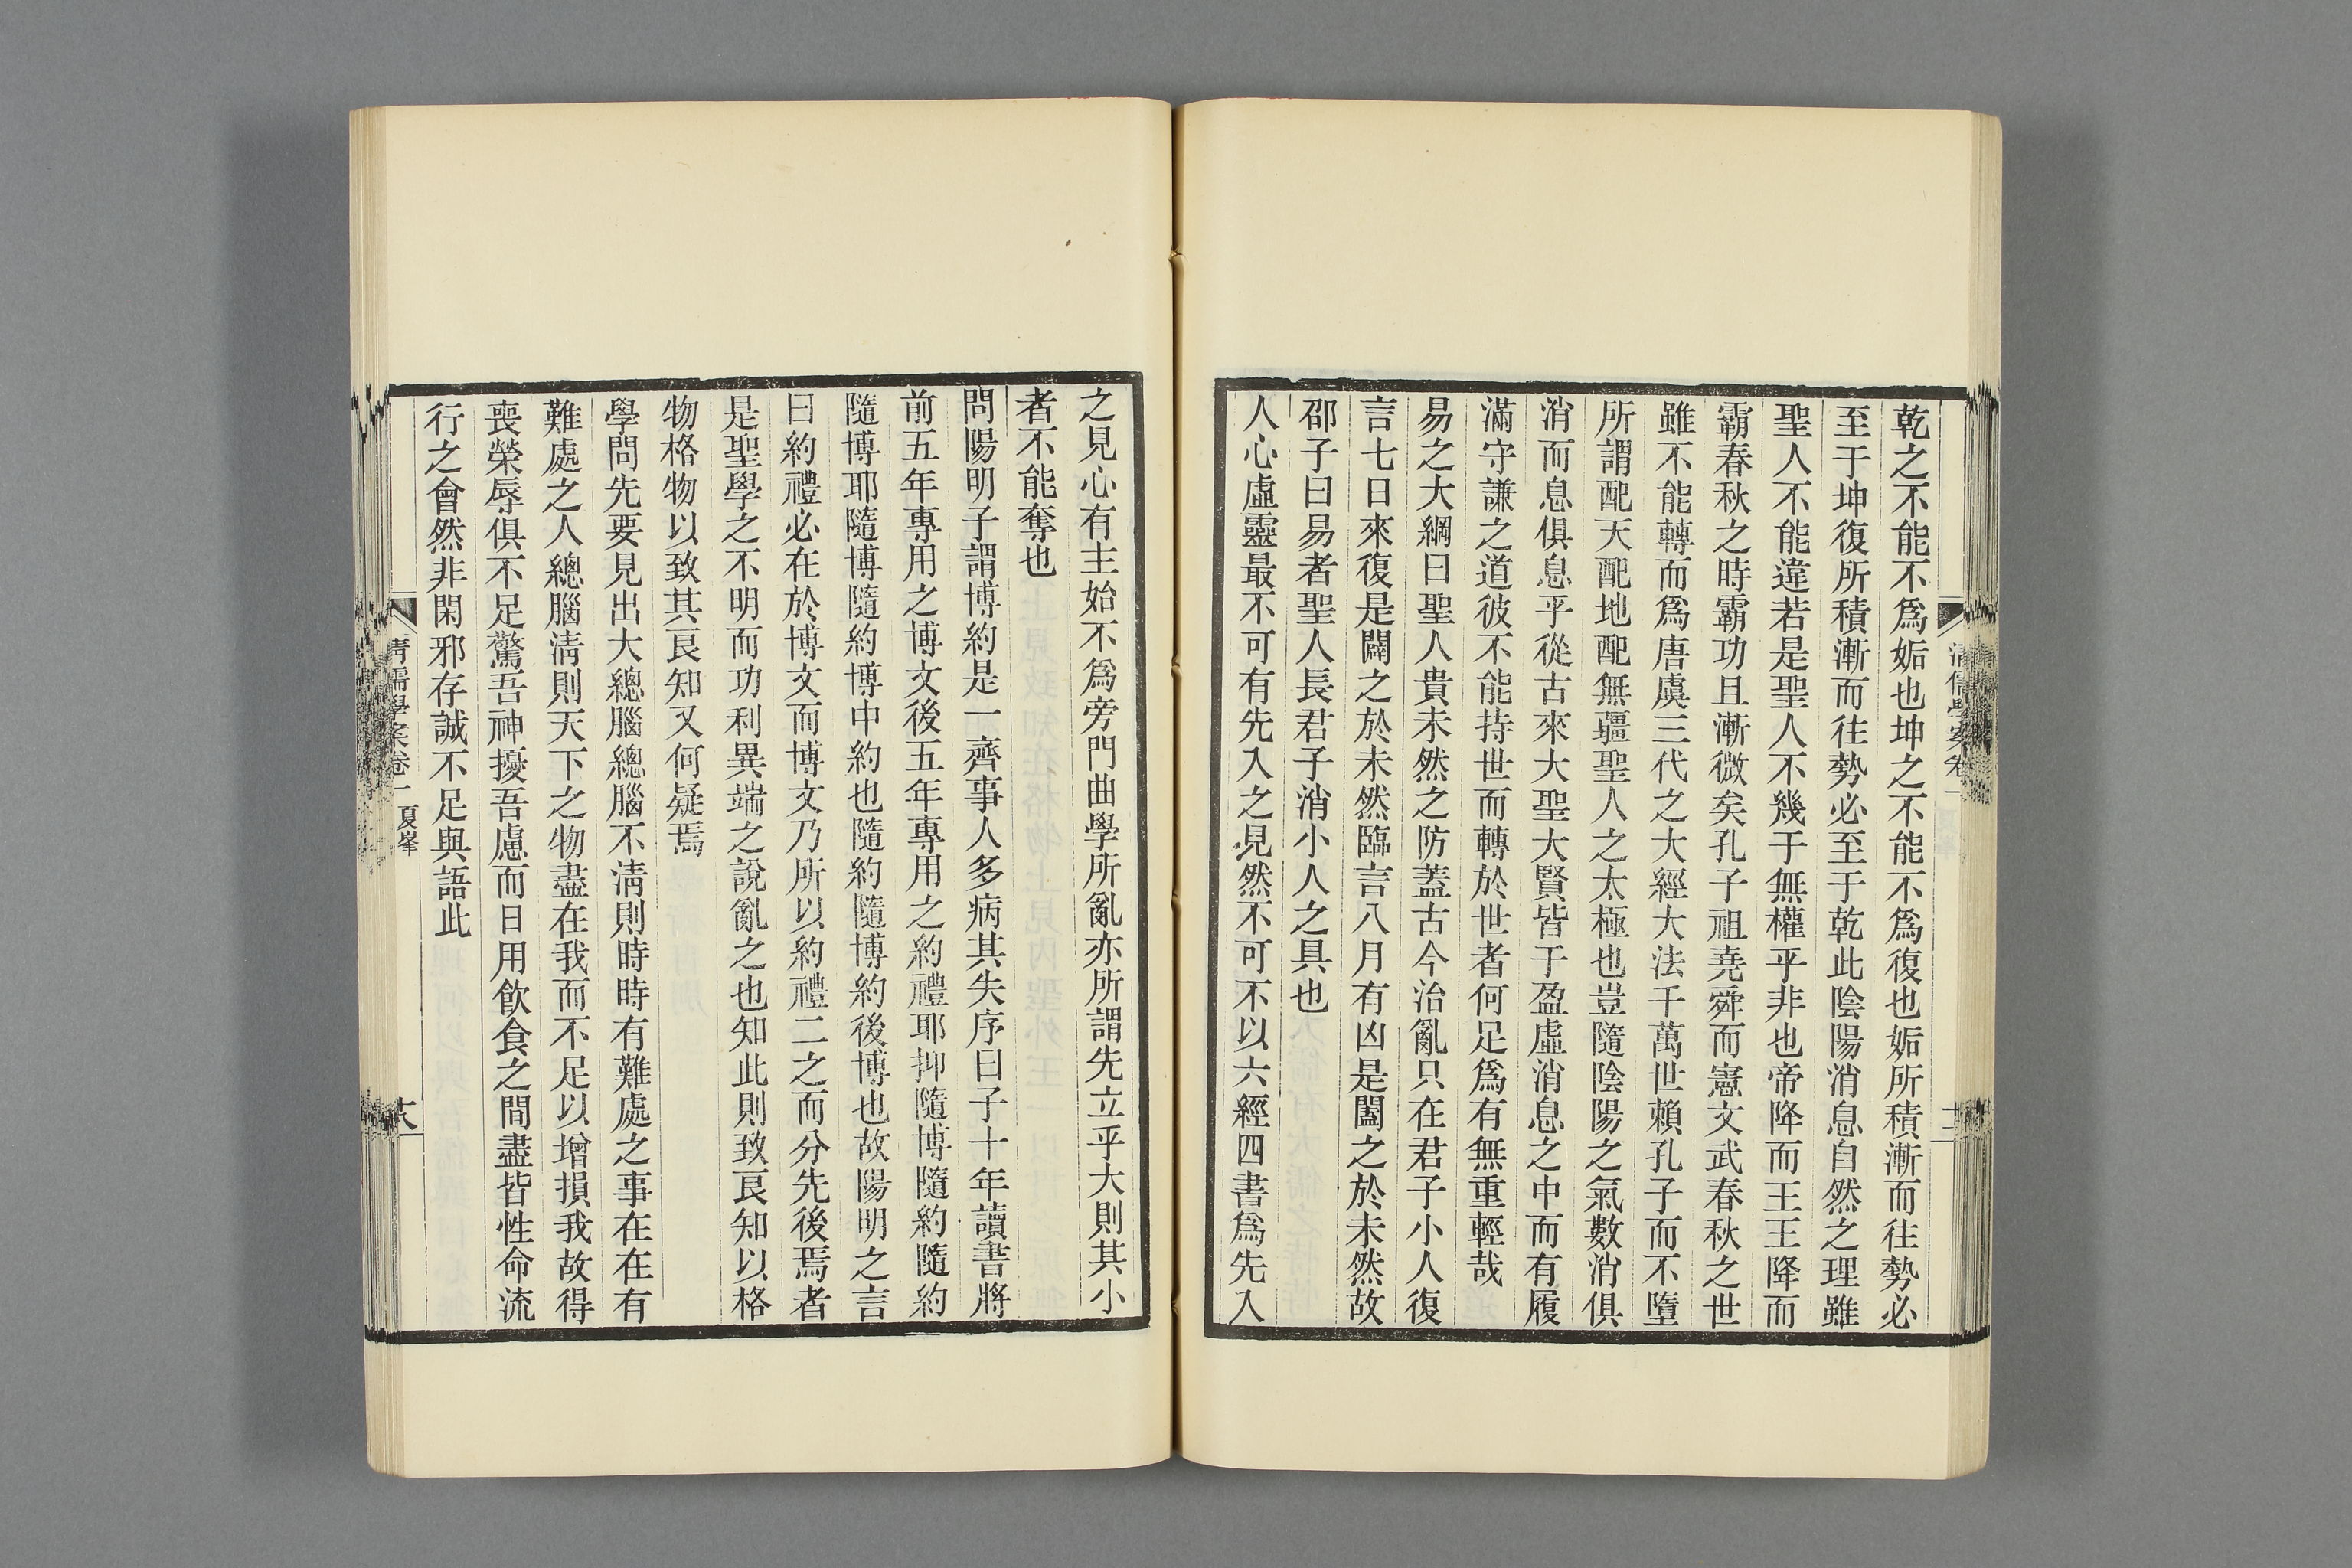 乾之不能不爲姤也坤之不能不爲復也姤所積漸而往勢必
至于坤復所積漸而往勢必至于乾此陰陽消息自然之理雖
聖人不能違若是聖人不幾于無權乎非也帝降而王王降而
霸春秋之時霸功且漸微矣孔子祖堯舜而憲文武春秋之世
雖不能轉而爲唐虞三代之大經大法千萬世賴孔子而不墮
所謂配天配地配無疆聖人之太極也豈隨陰陽之氣數消俱
消而息俱息乎從古來大聖大賢皆于盈虛消息之中而有履
滿守謙之道彼不能持世而轉於世者何足爲有無重輕哉
易之大綱曰聖人貴未然之防蓋古今治亂只在君子小人復
言七日來復是闢之於未然臨言八月有凶是闔之於未然故
邵子曰易者聖人長君子消小人之具也
人心虛靈最不可有先入之見然不可不以六經四書爲先入
之見心有主始不爲旁門曲學所亂亦所謂先立乎大則其小
者不能奪也
問陽明子謂博約是一齊事人多病其失序曰子十年讀書將
前五年專用之博文後五年專用之約禮耶抑隨博隨約隨約
隨博耶隨博隨約博中約也隨約隨博約後博也故陽明之言
曰約禮必在於博文而博文乃所以約禮二之而分先後焉者
是聖學之不明而功利異端之說亂之也知此則致良知以格
物格物以致其良知又何疑焉
學問先要見出大總腦總腦不淸則時時有難處之事在在有
難處之人總腦淸則天下之物盡在我而不足以增損我故得
喪榮辱俱不足驚吾神擾吾慮而日用飲食之間盡皆性命流
行之會然非閑邪存誠不足與語此
淸儒學案卷一 夏峯